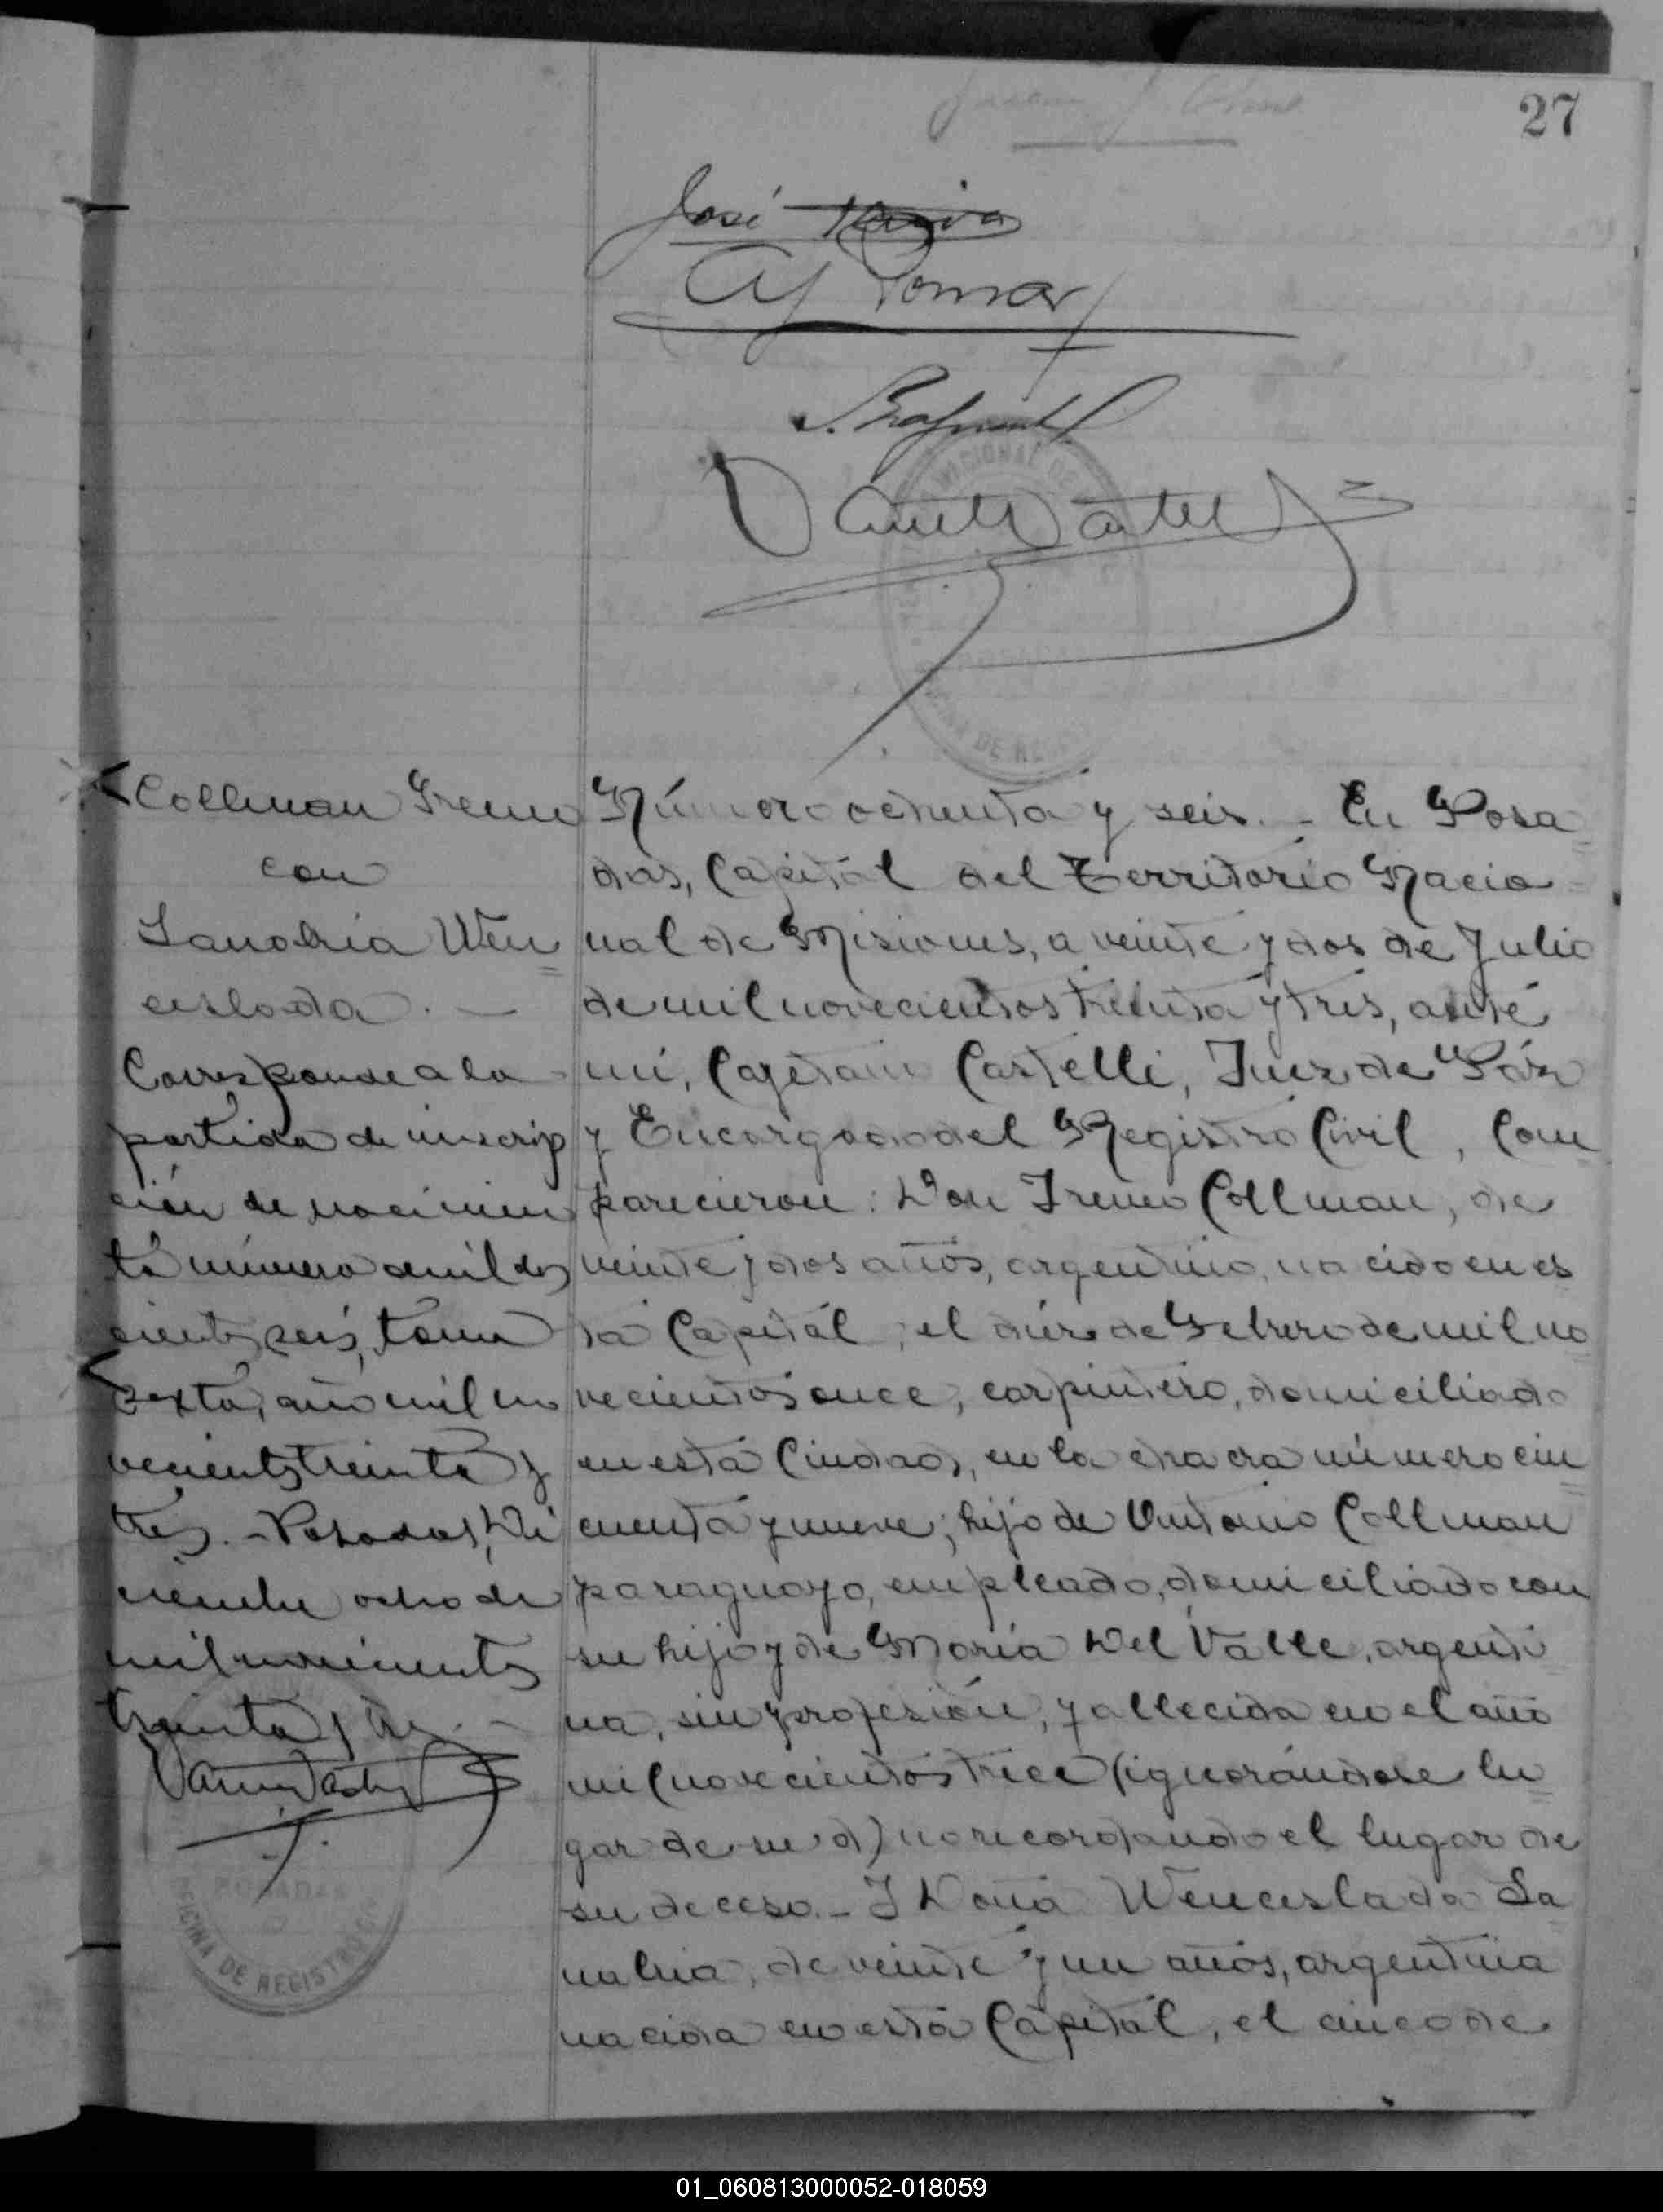 27
José
Collman Ireneo
con
Sanabria Wen=
ceslada. —
Corresponde a la
partida de inscrip
ción de nacimien
to número mil dos
cientos seis, tomo
sexto, año mil no
vecientos treinta y
tres. - Posadas, Di
ciembre ocho de
mil novecientos
treinta y tres. -
POSADAS
OFICINA DE REGISTRO
Número ochenta y seis. - En Posa=
das, Capital del Territorio Nacio=
nal de Misiones, a veinte y dos de Julio
de mil novecientos treinta y tres, ante
mi, Cayetano Castelli, Juez de Páz
y Encargado del Registro Civil, Com
parecieron: Don Ireneo Collman, de
veinte y dos años, argentino, nacido en es
ta Capitál, el diez de Febrero de mil no=
vecientos once, carpintero, domiciliado
en esta Ciudad, en la chacra número cin=
cuenta y nueve; hijo de Antonio Collman
paraguayo, empleado, domiciliado con
su hijo y de María Del Valle, argenti
na, sin profesión, fallecida en el año
mil novecientos trece (ignorándose lu=
gar de su d) no recordando el lugar de
su deceso. - Y Doña Wenceslada Sa=
nabria, de veinte y un años, argentina
nacida en esta Capitál, el cinco de
01_060813000052-018059